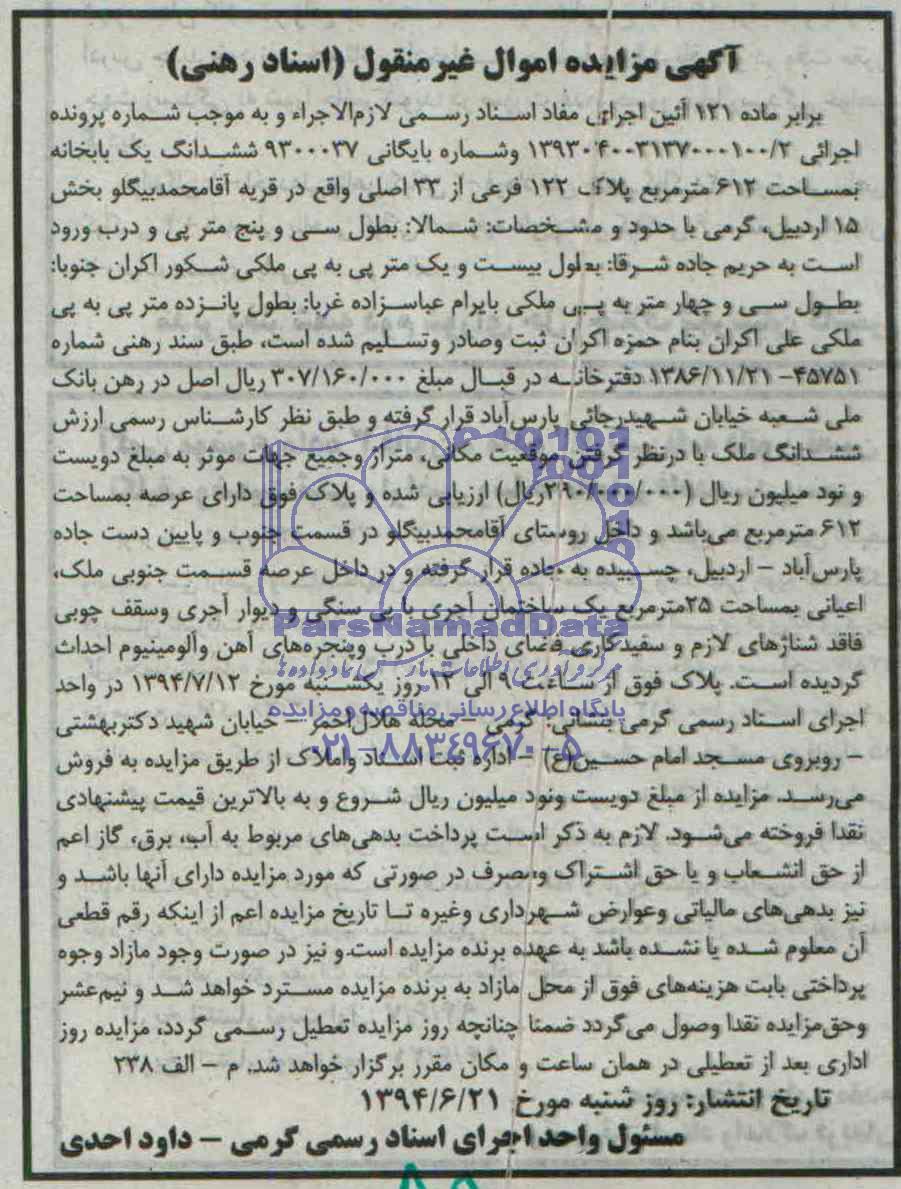 آگهی مزایده اموال غیرمنقول (اسناد رهنی)
برابر ماده ۱۲۱ آئین اجرای مفاد اسناد رسمی لازم‌الاجراء و به موجب شماره پرونده
اجرائی ۱۳۹۳۰۴۰۰۳۱۳۷۰۰۰۱۰۰/۲ وشماره بایگانی ۹۳۰۰۰۳۷ ششدانگ یک بابخانه
بمساحت ۶۱۲ مترمربع پلاک ۱۲۲ فرعی از ۳۳ اصلی واقع در قریه آقامحمدبیگلو بخش
۱۵ اردبیل، گرمی با حدود و مشخصات: شمالا: بطول سی و پنج متر پی و درب ورود
است به حریم جاده شرقا: بطول بیست و یک متر پی به پی ملکی شکور اکران جنوبا:
بطول سی و چهار متر به پی ملکی بایرام عباسزاده غربا: بطول پانزده متر پی به پی
ملکی علی اکران بنام حمزه اکران ثبت وصادر وتسلیم شده است، طبق سند رهنی شماره
۴۵۷۵۱- ۱۳۸۶/۱۱/۲۱ دفترخانه در قبال مبلغ ۳۰۷/۱۶۰/۰۰۰ ریال اصل در رهن بانک
ملی شعبه خیابان شهیدرجائی پارس‌آباد قرار گرفته و طبق نظر کارشناس رسمی ارزش
ششدانگ ملک با درنظر گرفتن موقعیت مکانی، متراژ وجمیع جهات موثر به مبلغ دویست
و نود میلیون ریال (۲۹۰/۰۰۰/۰۰۰ریال) ارزیابی شده و پلاک فوق دارای عرصه بمساحت
۶۱۲ مترمربع می‌باشد و داخل روستای آقامحمدبیگلو در قسمت جنوب و پایین دست جاده
پارس‌آباد – اردبیل، چسبیده به جاده قرار گرفته و در داخل عرصه قسمت جنوبی ملک،
اعیانی بمساحت ۲۵مترمربع یک ساختمان آجری با پی سنگی و دیوار آجری وسقف چوبی
فاقد شناژهای لازم و سفیدکاری فضای داخلی با درب وپنجره‌های آهن وآلومینیوم احداث
گردیده است. پلاک فوق از ساعت ۹ الی ۱۲ روز یکشنبه مورخ ۱۳۹۴/۷/۱۲ در واحد
اجرای اسناد رسمی گرمی بنشانی: گرمی – محله هلال احمر – خیابان شهید دکتربهشتی
– روبروی مسجد امام حسین(ع) – اداره ثبت اسناد واملاک از طریق مزایده به فروش
می‌رسد. مزایده از مبلغ دویست ونود میلیون ریال شروع و به بالاترین قیمت پیشنهادی
نقدا فروخته می‌شود. لازم به ذکر است پرداخت بدهی‌های مربوط به آب، برق، گاز اعم
از حق انشعاب و یا حق اشتراک ومصرف در صورتی که مورد مزایده دارای آنها باشد و
نیز بدهی‌های مالیاتی وعوارض شهرداری وغیره تا تاریخ مزایده اعم از اینکه رقم قطعی
آن معلوم شده یا نشده باشد به عهده برنده مزایده است.و نیز در صورت وجود مازاد وجوه
پرداختی بابت هزینه‌های فوق از محل مازاد به برنده مزایده مسترد خواهد شد و نیم‌عشر
وحق‌مزایده نقدا وصول می‌گردد ضمنا چنانچه روز مزایده تعطیل رسمی گردد، مزایده روز
اداری بعد از تعطیلی در همان ساعت و مکان مقرر برگزار خواهد شد. م – الف ۲۳۸
تاریخ انتشار: روز شنبه مورخ ۱۳۹۴/۶/۲۱
مسئول واحد اجرای اسناد رسمی گرمی – داود احدی
ParsNamadData
مرکز فرآوری اطلاعات پارس نماد داده‌ها
پایگاه اطلاع رسانی مناقصه و مزایده
۰۲۱-۸۸۳۴۹۶۷۰-۵